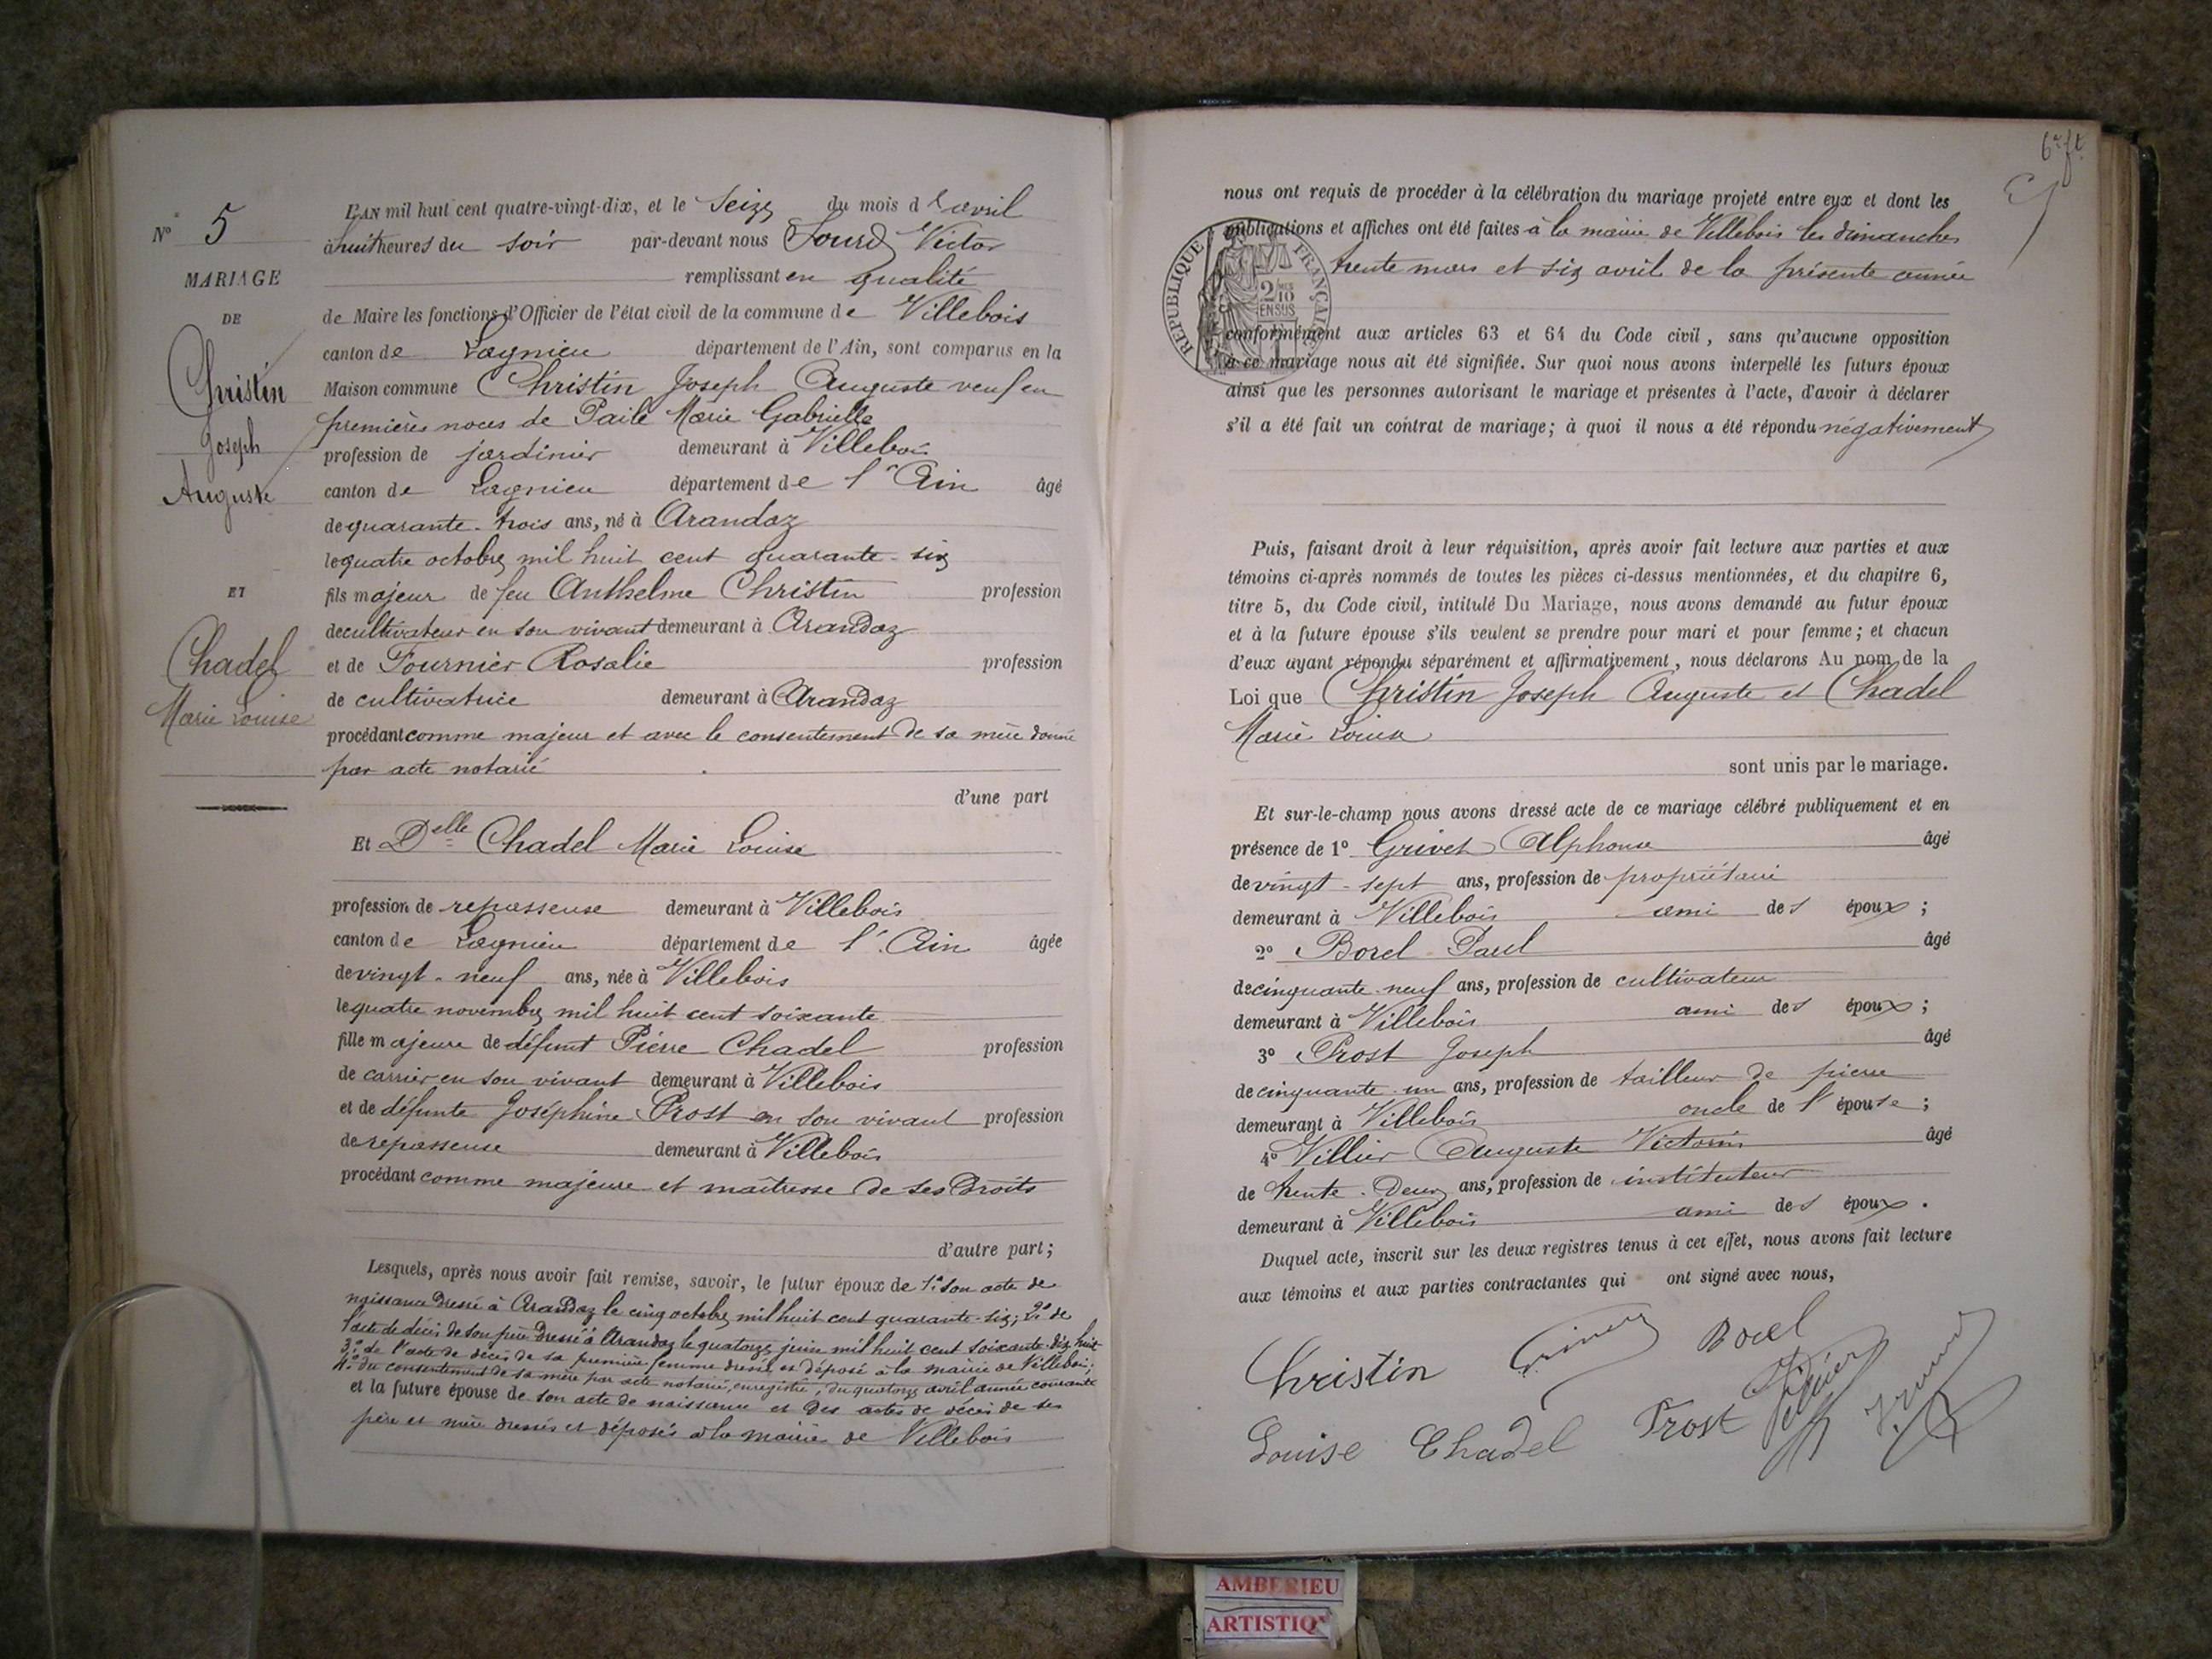 N° 5
MARIAGE
DE
Christin
Joseph
Auguste
ET
Chadel
Marie Louise
L'AN mil huit cent quatre-vingt-dix, et le seize du mois d'avril
à huit heures du soir par-devant nous Sourd Victor
remplissant en qualité
de Maire les fonctions d'Officier de l'état civil de la commune de Villebois
canton de Lagnieu département de l'Ain, sont comparus en la
Maison commune Christin Joseph Auguste veuf en
premières noces de Marie Gabrielle
profession de jardinier demeurant à Villebois
canton de Lagnieu département de l'Ain âgé
de quarante-trois ans, né à Arandaz
le quatre octobre mil huit cent quarante-six
fils majeur de feu Anthelme Christin profession
de cultivateur en son vivant demeurant à Arandaz
et de Fournier Rosalie profession
de cultivatrice demeurant à Arandaz
procédant comme majeur et avec le consentement de sa mère donné
par acte notarié
d'une part
Et Delle Chadel Marie Louise
profession de repasseuse demeurant à Villebois
canton de Lagnieu département de l'Ain âgée
de vingt-neuf ans, née à Villebois
le quatre novembre mil huit cent soixante
fille majeure de défunt Pierre Chadel profession
de carrier en son vivant demeurant à Villebois
et de défunte Joséphine Prost en son vivant profession
de repasseuse demeurant à Villebois
procédant comme majeure et maîtresse de ses droits
d'autre part;
Lesquels, après nous avoir fait remise, savoir, le futur époux de 1° son acte de
naissance dressé à Arandaz le cinq octobre mil huit cent quarante-six; 2° de
l'acte de décès de son père dressé à Arandaz le quatorze juin mil huit cent soixante-dix huit
3° de l'acte de décès de sa première femme dressé et déposé à la mairie de Villebois;
4° du consentement de sa mère par acte notarié, enregistré, du quatorze avril année courante
et la future épouse de son acte de naissance et des actes de décès de ses
père et mère dressés et déposés à la mairie de Villebois
6e ft
nous ont requis de procéder à la célébration du mariage projeté entre eux et dont les
publications et affiches ont été faites à la mairie de Villebois les dimanches
trente mars et six avril de la présente année
RÉPUBLIQUE FRANÇAISE
2/10 EN SUS
conformément aux articles 63 et 64 du Code civil, sans qu'aucune opposition
à ce mariage nous ait été signifiée. Sur quoi nous avons interpellé les futurs époux
ainsi que les personnes autorisant le mariage et présentes à l'acte, d'avoir à déclarer
s'il a été fait un contrat de mariage; à quoi il nous a été répondu négativement
Puis, faisant droit à leur réquisition, après avoir fait lecture aux parties et aux
témoins ci-après nommés de toutes les pièces ci-dessus mentionnées, et du chapitre 6,
titre 5, du Code civil, intitulé Du Mariage, nous avons demandé au futur époux
et à la future épouse s'ils veulent se prendre pour mari et pour femme; et chacun
d'eux ayant répondu séparément et affirmativement, nous déclarons Au nom de la
Loi que Christin Joseph Auguste et Chadel
Marie Louise
sont unis par le mariage.
Et sur-le-champ nous avons dressé acte de ce mariage célébré publiquement et en
présence de 1° Grivet Alphonse âgé
de vingt-sept ans, profession de propriétaire
demeurant à Villebois ami des époux;
2° Borel Paul âgé
de cinquante-neuf ans, profession de cultivateur
demeurant à Villebois ami des époux;
3° Prost Joseph âgé
de cinquante-un ans, profession de tailleur de pierre
demeurant à Villebois oncle de l'épouse;
4° Villier Auguste Victorin âgé
de trente-deux ans, profession de instituteur
demeurant à Villebois ami des époux.
Duquel acte, inscrit sur les deux registres tenus à cet effet, nous avons fait lecture
aux témoins et aux parties contractantes qui ont signé avec nous,
Christin Borel
Louise Chadel Prost
AMBERIEU
ARTISTIQ